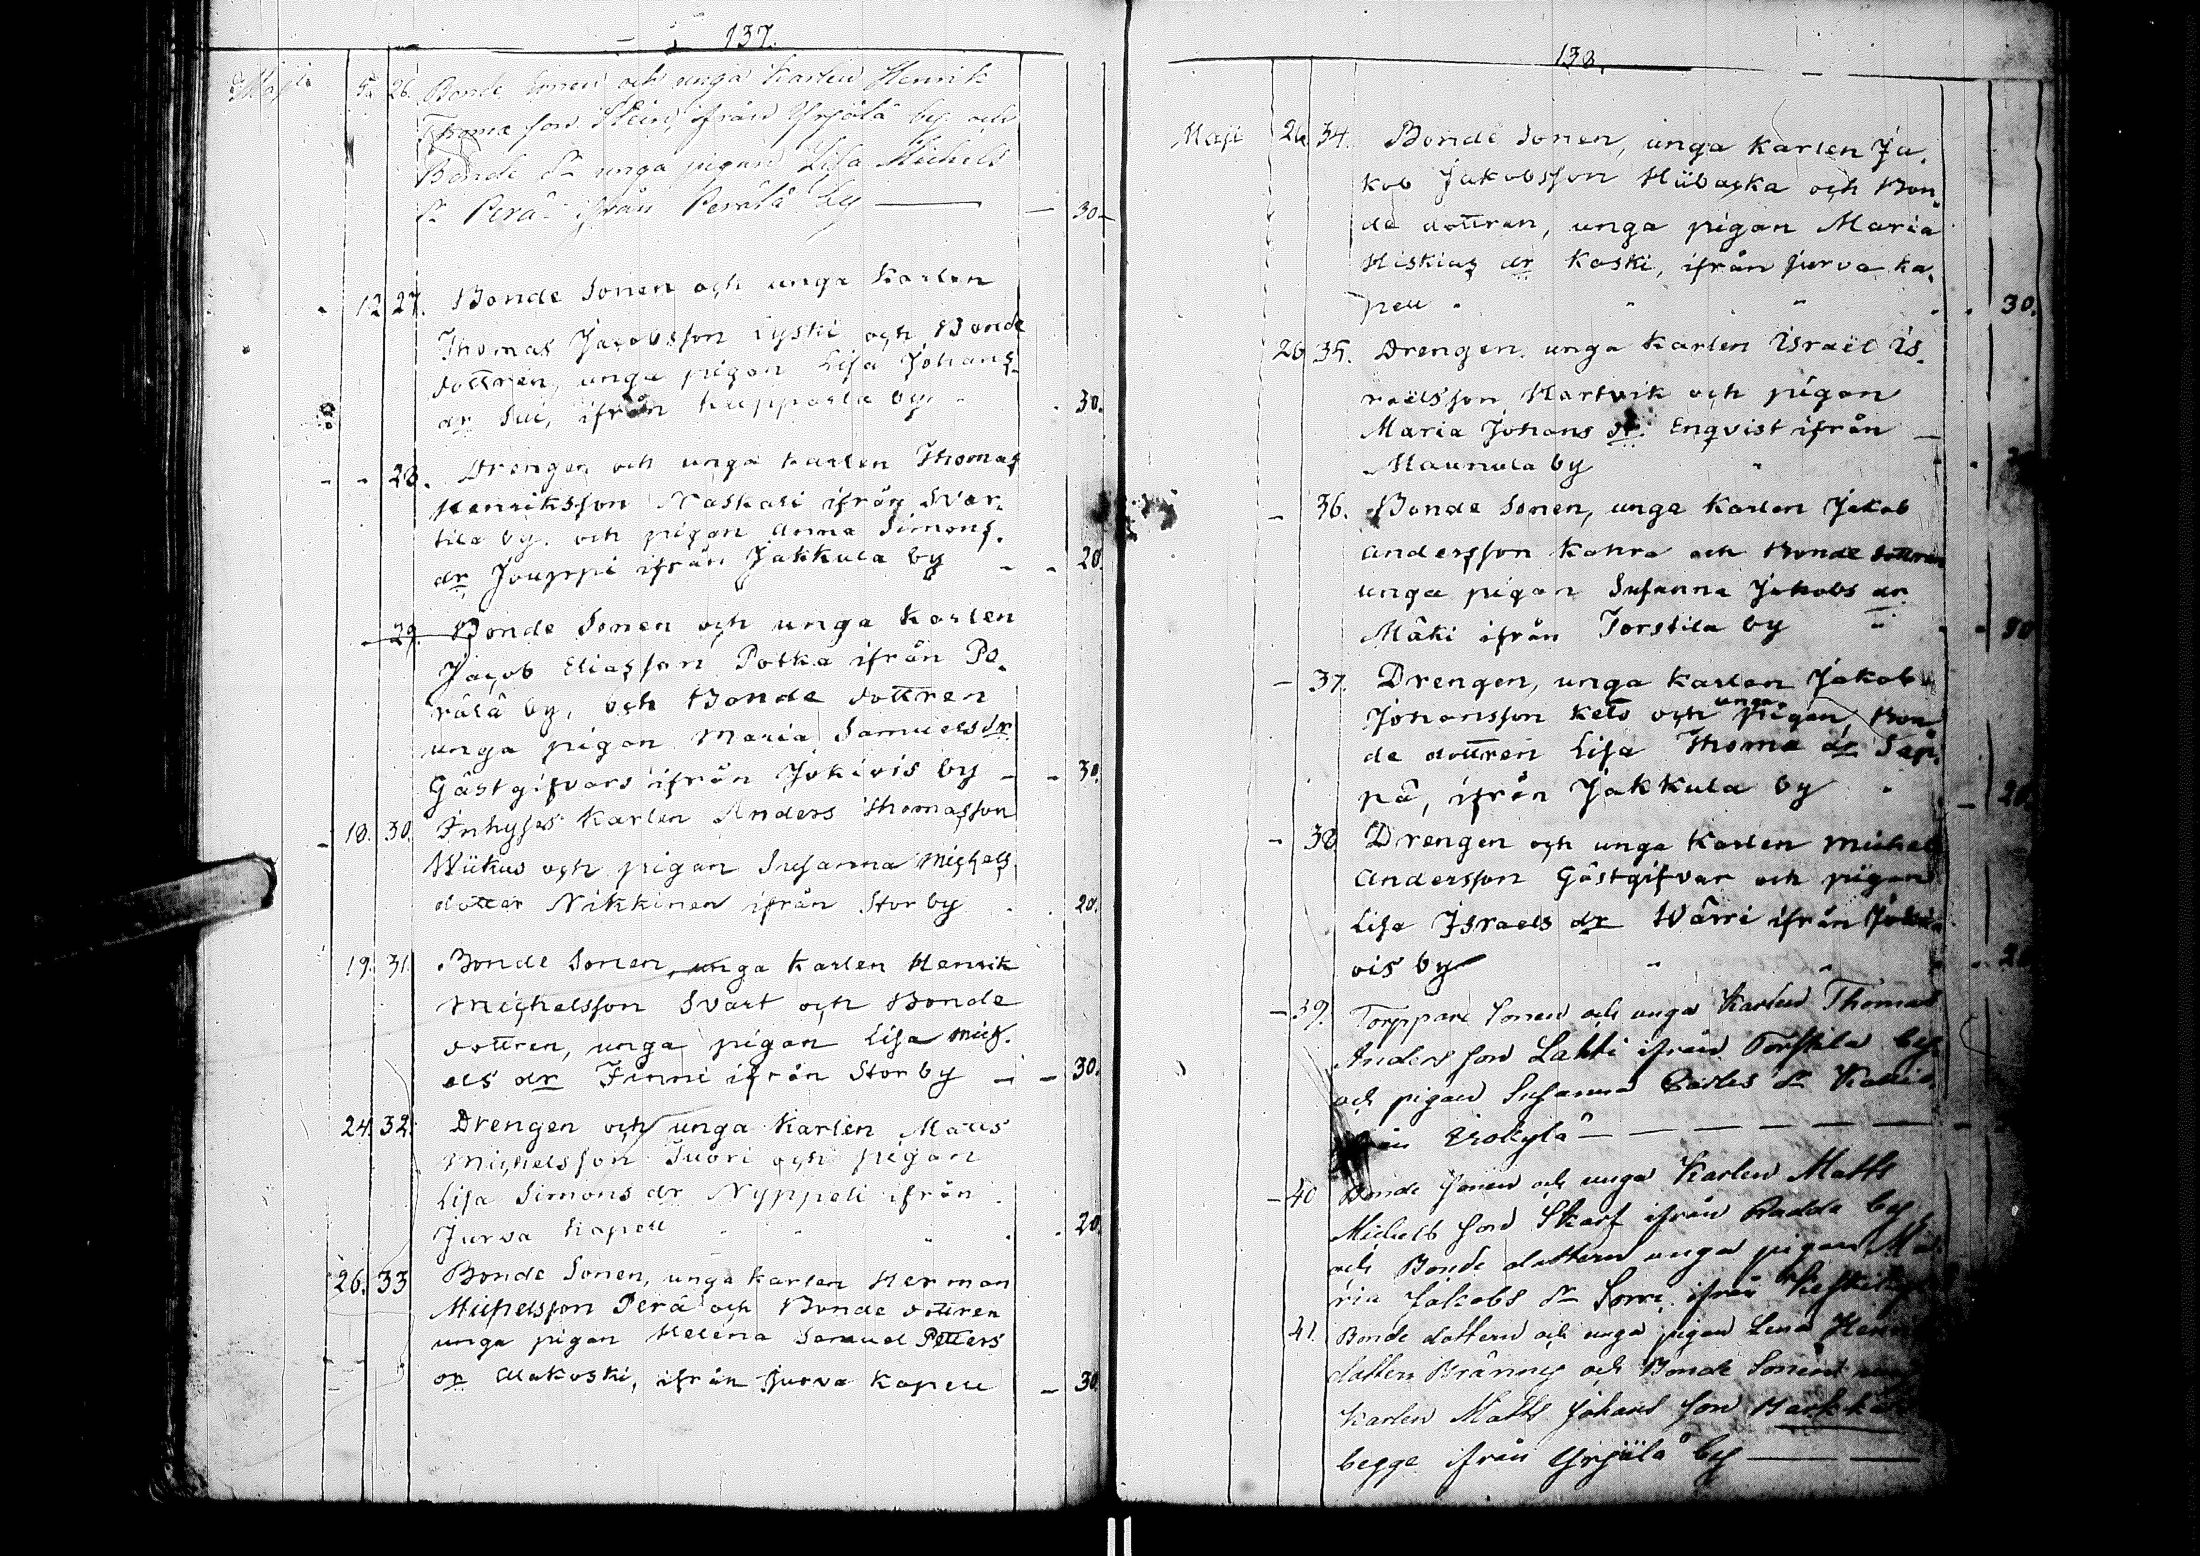 137.
Maji 5. 26. Bonde Sonen och unga Karlen Henrik
Thomæ son Klein, ifrån Yrjälä by och
Bonde dr unga pigan Lisa Michels
dr Perä ifrån Perälä by — 30
12 27. Bonde Sonen och unga Karlen
Thomas Jacobsson Lyski och Bonde
dottren, unga pigan Lisa Johans
dr Sui, ifrån Kupparla by. 30.
- - 28. Drengen och unga Karlen Thomas
Henriksson Raskali ifrån Svar-
tila by. och pigan Anna Simons
dr Jouppi ifrån Jakkula by - - 20.
29. Bonde Sonen och unga Karlen
Jacob Eliasson Potka ifrån Pe-
rälä by, och Bonde dottren
unga pigan Maria Samuels dr
Gästgifvars ifrån Jokivis by - - 30.
- 18. 30. Inhyses Karlen Anders Thomasson
Wiikus och pigan Susanna Michels
dotter Nikkinen ifrån Storby . . 20.
19. 31. Bonde Sonen, unga Karlen Henrik
Michelsson Svart och Bonde
dottren, unga pigan Lisa Mich-
els dr Finni ifrån Storby - - 30.
24. 32. Drengen och unga Karlen Matts
Michelsson Tuori och pigan
Lisa Simons dr Nyppeli ifrån
Jurva Kapell 20.
26. 33 Bonde Sonen, unga Karlen Herman
Michelsson Perä och Bonde dottren
unga pigan Helena Samuel Petters
dr Alakoski, ifrån Jurva Kapell - 30.
138.
Maji 26 34. Bonde Sonen, unga Karlen Ja-
kob Jakobsson Hübacka och Bon-
de dottren, unga pigan Maria
Hiskias dr Koski, ifrån Jurva Ka-
pell 30.
26 35. Drengen, unga Karlen Israël Is-
raëlsson Hartvik och pigan
Maria Johans dr Enqvist ifrån
Maunula by
- 36. Bonde Sonen, unga Karlen Jakob
Andersson Kahra och Bonde dottren
unga pigan Susanna Jakobs dr
Mäki ifrån Torstila by 30
- 37. Drengen, unga Karlen Jakob
Johansson Keto och unga pigan, Bon
de dottren Lisa Thomæ dr Sep-
pä, ifrån Jakkula by - 20.
- 38 Drengen och unga Karlen Michel
Andersson Gästgifvar och pigan
Lisa Israels dr Wärri ifrån Joki
vis by 20
- 39. Torppare Sonen och unga Karlen Thomas
Anders son Lahti ifrån Torstila by
och pigan Susanna Carls dr
Isokylä
- 40 Bonde Sonen och unga Karlen Matts
Michels son Skarf ifrån Radda by,
och Bonde dottern unga pigan Ma-
ria Jakobs dr Sorri ifrån
41. Bonde dottern och unga pigan Lena
dottern Bränny och Bonde Sonen
Karlen Matts Johans son
begge ifrån Yrjälä by